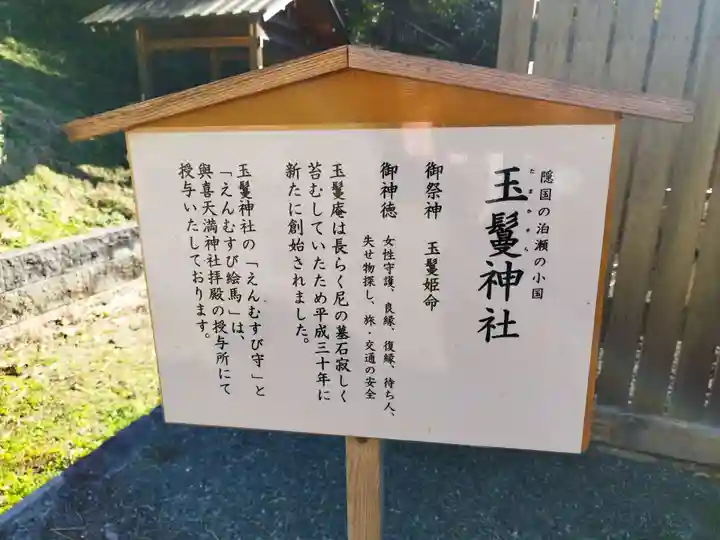 隠国の泊瀬の小国
玉鬘神社
たまかづら
御祭神　玉鬘姫命
御神徳　女性守護、良縁、復縁、待ち人、
失せ物探し、旅・交通の安全
玉鬘庵は長らく尼の墓石寂しく
苔むしていたため平成三十年に
新たに創始されました。
玉鬘神社の「えんむすび守」と
「えんむすび絵馬」は、
與喜天満神社拝殿の授与所にて
授与いたしております。